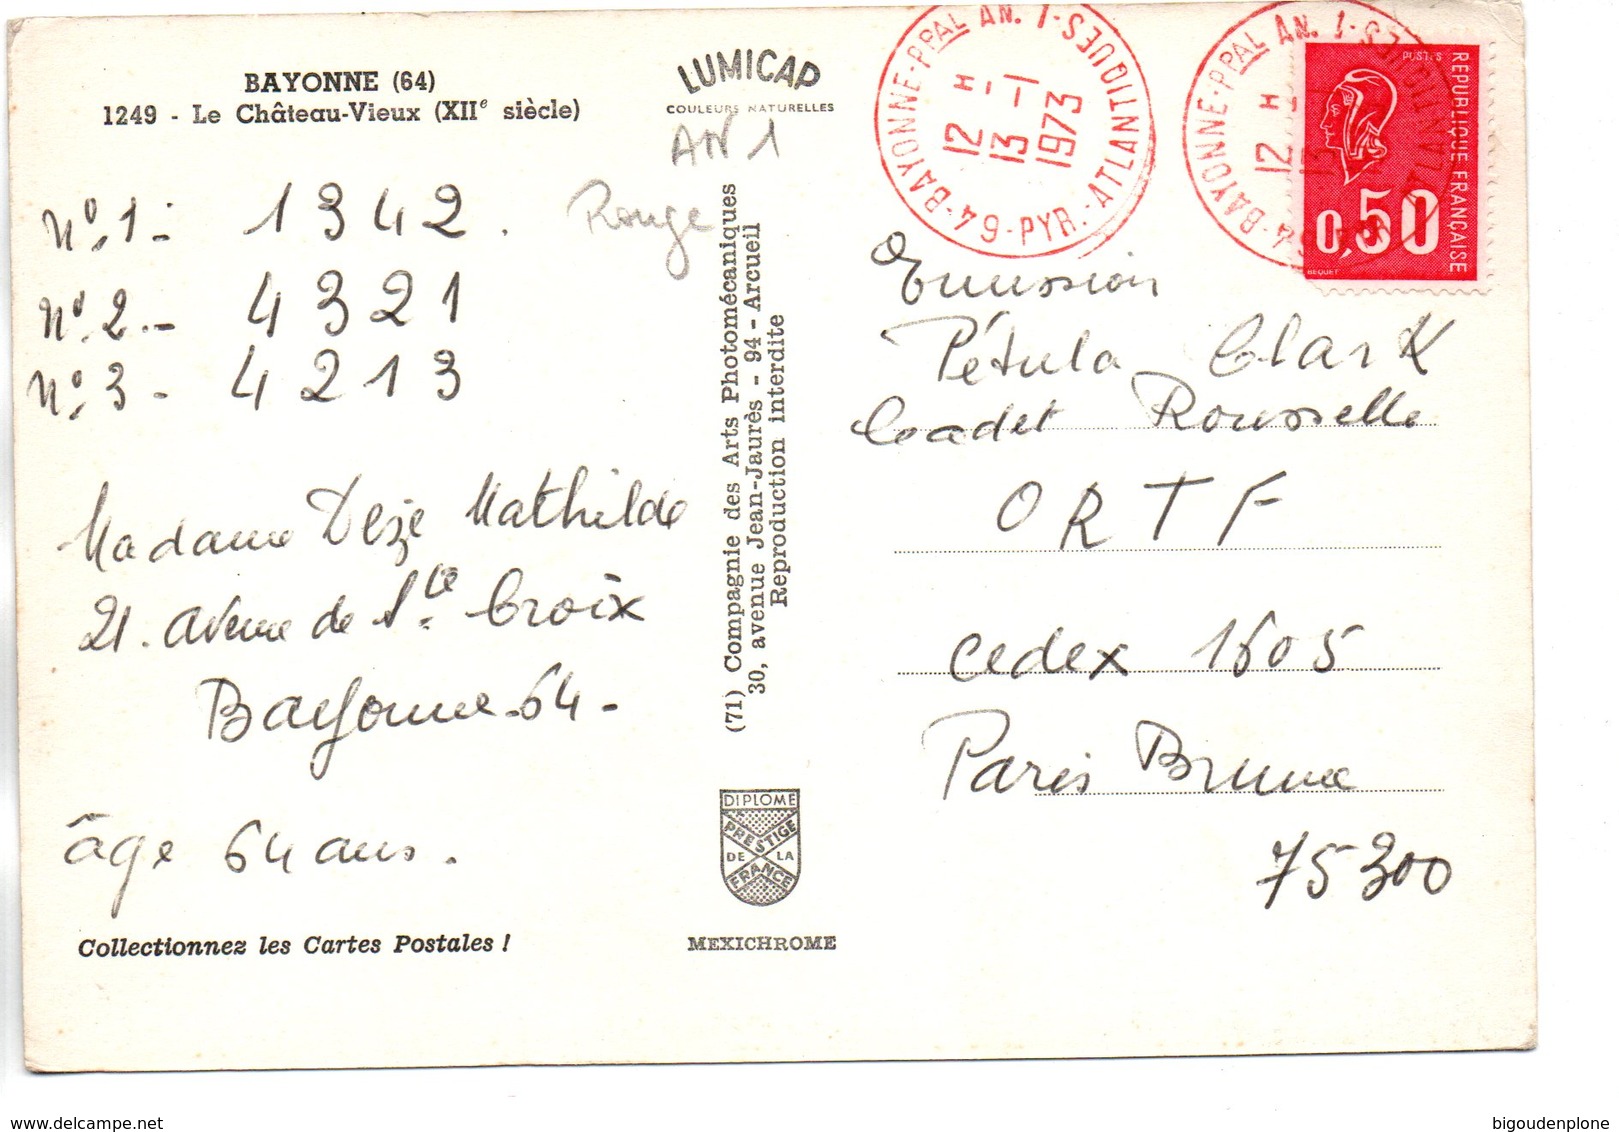 BAYONNE (64)
1249 - Le Château-Vieux (XIIe siècle)
LUMICAP
COULEURS NATURELLES
AN 1
Rouge
N°.1 - 1342.
N°2.- 4321
N°.3 - 4213
Madame Dezé Mathilde
21. Avenue de Ste. Croix
Bayonne-64-
âge 64 ans.
Collectionnez les Cartes Postales !
(71) Compagnie des Arts Photomécaniques
30, avenue Jean-Jaurès - 94 - Arcueil
Reproduction interdite
DIPLOME
PRESTIGE
DE LA
FRANCE
MEXICHROME
BAYONNE-PPAL AN. 1
64-PYR.-ATLANTIQUES
12 H
13-1
1973
BAYONNE-PPAL AN. 1
64-PYR.-ATLANTIQUES
12 H
13
POSTES
REPUBLIQUE FRANÇAISE
0,50
BEQUET
Emission
Pétula Clark
Cadet Rousselle
O R T F
Cedex 1605
Paris Brune
75300
bigoudenplone